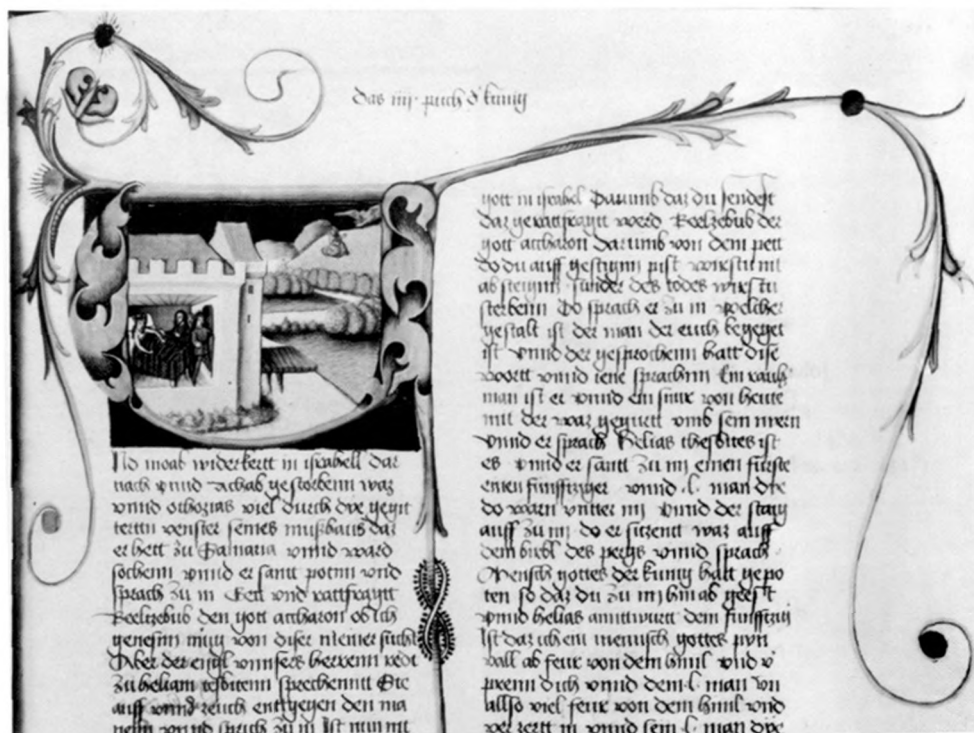 das iiij. puch d' kunig
Nd moab widerkertt in israhell dar
nach vnnd Achab gestorbenn war
vnnd ochozias viel durch dye gegit
tertn venster seines mußhaus dar
er hett zu Samaria vnnd ward
siechenn vnnd er santt potnn vnd
sprach zu in Eett vnd rattfragtt
Beelzebub den gott accharon ob ich
genesnn mug von diser meiner sucht
Aber der engl vnnsers herrenn redt
zu heliam tesbitenn sprechenntt Ste
auff vnnd zeuch enttgegen den ma
nenn vnnd sprich zu in Ist nun nit
gott in israhel Darumb dar du sendest
dar gerattfragtt werd Beelzebub der
gott accharon darumb von dem pett
do du auff gestignn pist wirstu nit
ab steignn sunder des todes wirstu
sterbenn Do sprach er zu in welcher
gestalt ist der man der euch begegnt
ist vnnd der gesprochenn hatt dise
wortt vnnd iene sprachnn Ein rauch
man ist er vnnd ein hute von heute
mit der war gegurtt vmb sein niern
vnnd er sprach Helias thesbites ist
es vnnd er santt zu im einen furste
einen funfftziger vnnd .l. man dye
do warn vntter im vnnd der staig
auff zu im do er sitzentt war auff
dem buhl des pergs vnnd sprach
Mensch gottes der kunig hatt gepo
ten so dar du zu im hin ab geest
vnnd helias anttwurtt dem funfftzig
Ist dar ich ein mennsch gottes pyn
vall ab feur von dem himl vnd v'
prenn dich vnnd dem .l. man vn
allso viel feur von dem himl vnd
verzertt in vnnd sein .l. man dye